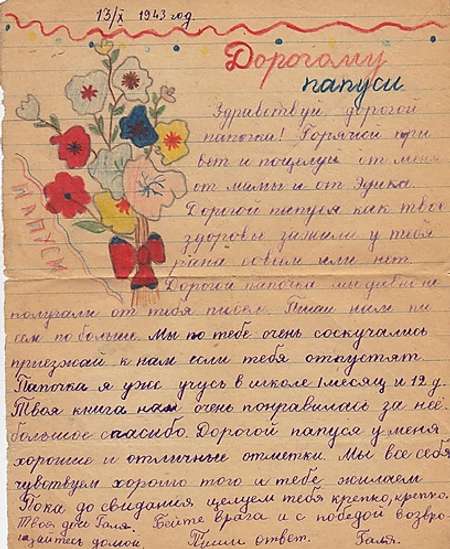 13/X 1943 год
Дорогому
папуси
Здравствуй, дорогой
папочка! Горячий при
вет и поцелуй от меня
от мамы и от Эдика.
Дорогой папуся как твое
здоровье зажили у тебя
раны совсем или нет.
ПАПУСИ
Дорогой папочка мы давно не
получали от тебя писем. Пиши нам пи
сем по больше. Мы по тебе очень соскучались
приезжай к нам если тебя отпустят.
Папочка я уже учусь в школе 1 месяц и 12 д.
Твоя книга нам очень понравилась за неё
большое спасибо. Дорогой папуся у меня
хорошие и отличные отметки. Мы все себя
чувствуем хорошо того и тебе жилаем
Пока до свидания целуем тебя крепко, крепко.
Твоя доч Галя. Бейте врага и с победой возвро-
щайтесь домой. Пиши ответ. Галя.